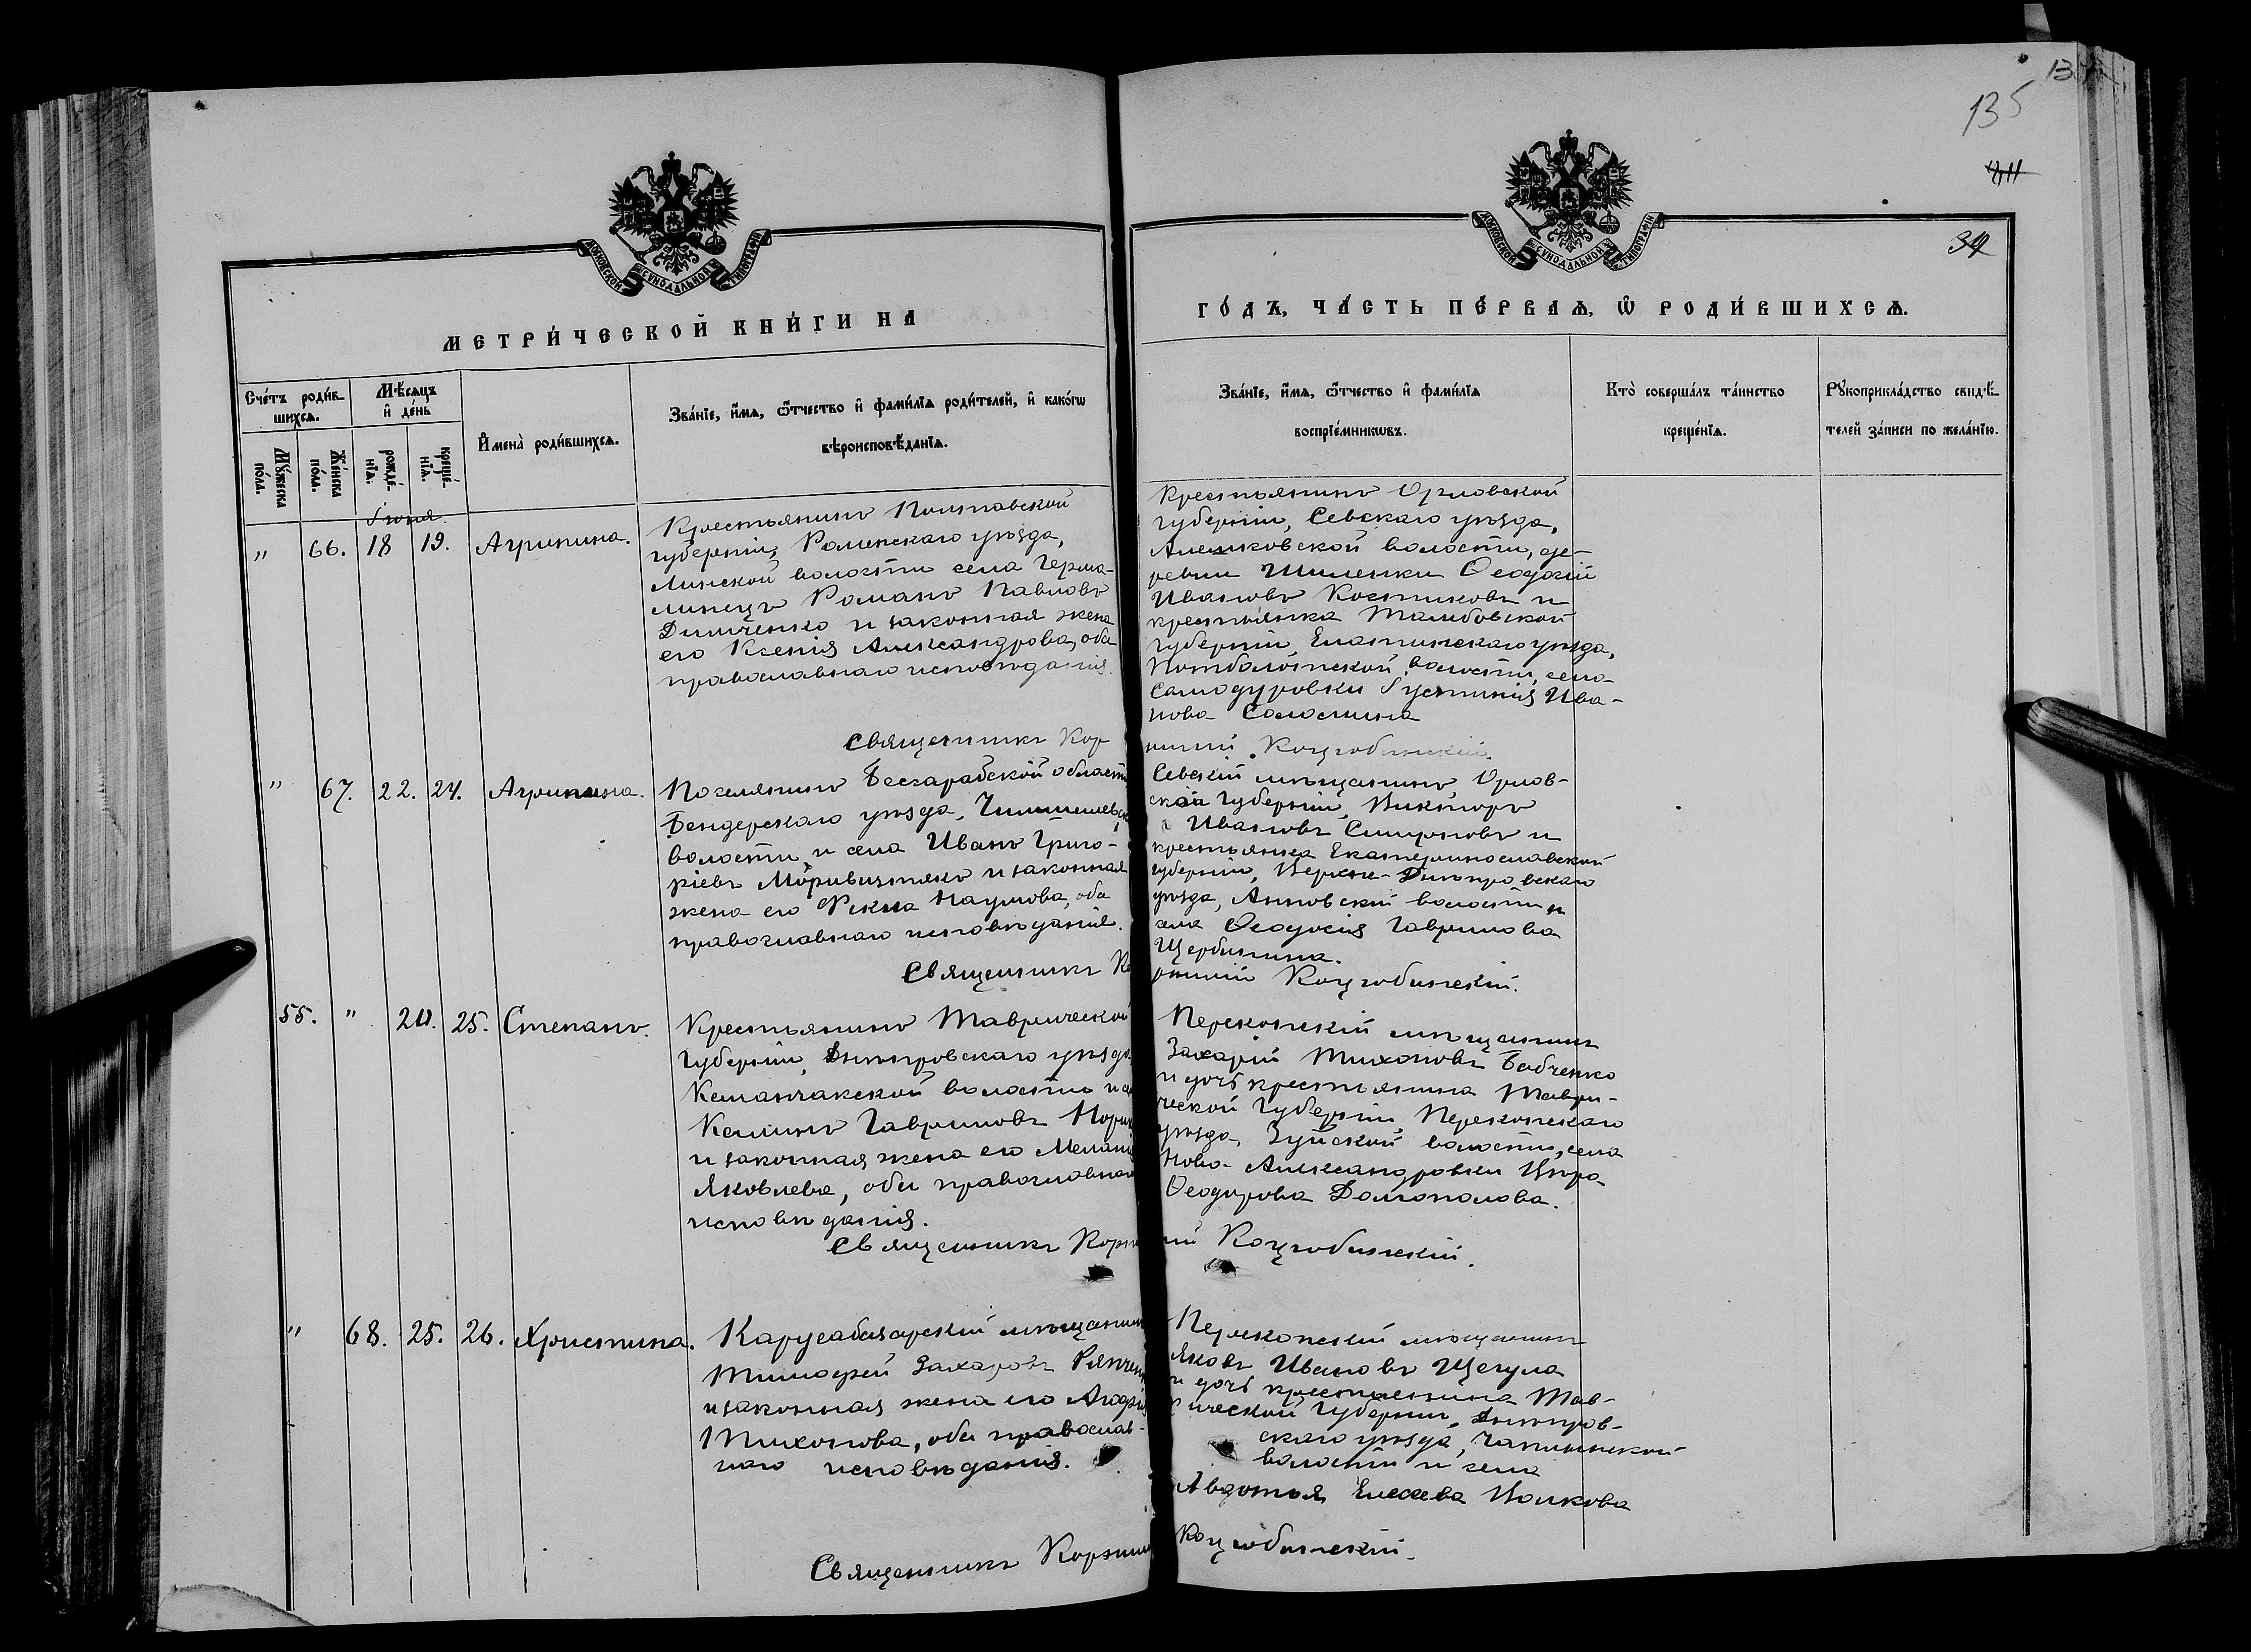 13
135
34
МОСКОВСКОЙ СѴНОДАЛЬНОЙ ТИПОГРАФІИ
МОСКОВСКОЙ СѴНОДАЛЬНОЙ ТИПОГРАФІИ
МЕТРИ́ЧЕСКОЙ КНИ́ГИ НА
ГО́ДЪ, ЧА́СТЬ ПЕ́РВАѦ, Ѡ҆ РОДИ́ВШИХСѦ.
Сче́тъ роди́в-
шихсѧ.
Мꙋ́жеска
по́ла.
Же́нска
по́ла.
Мѣ́сѧцъ
и҆ де́нь
рожде́-
нїѧ.
креще́-
нїѧ.
И҆мена̀ роди́вшихсѧ.
Зва́нїе, и҆́мѧ, ѻ҆́тчество и҆ фами́лїѧ роди́телей, и҆ како́гѡ
вѣроисповѣ́данїѧ.
Зва́нїе, и҆́мѧ, ѻ҆́тчество и҆ фами́лїѧ
воспрїе́мникѡвъ.
Кто̀ соверша́лъ та́инство
креще́нїѧ.
Рꙋкоприкла́дство свидѣ́-
телей за́писи по жела́нїю.
Іюня.
" 66. 18 19. Агрипина.
Крестьянинъ Полтавской
губерніи, Роменскаго уѣзда,
Липской волости села Герма-
Романъ Павловъ
Димченко и законная жена
его Ксенія Александрова, оба
православнаго исповѣданія.
Крестьянинъ Орловской
губерніи, Севскаго уѣзда,
Алешковской волости, де-
ревни Шиленки Ѳеодосій
Ивановъ Костиковъ и
крестьянка Тамбовской
губерніи, Елатинскаго уѣзда,
волости, села
Самодуровки Іустинія Ива-
нова Соломина
Священникъ Кор
нилий Коцюбинскій.
" 67. 22. 24. Агрипина.
Поселянинъ Бессарабской области
Бендерскаго уѣзда, Чимишлійск
волости и села Иванъ Григо-
ріевъ и законная
жена его Ѳекла Наумова, оба
православнаго исповѣданія.
Севскій мѣщанинъ, Орлов-
ской губерніи, Викторъ
Ивановъ Смирновъ и
крестьянка Екатеринославской
губерніи, Верхне-Днѣпровскаго
уѣзда, Анновской волости и
села Ѳеодосія Гаврилова
Щербинина.
Священникъ Ко
рнилій Коцюбинскій.
55. " 24. 25. Степанъ.
Крестьянинъ Таврической
Губерніи, Днѣпровскаго уѣзда
Каланчакской волости и се
Каллинъ Гавриловъ
и законная жена его Меланія
Яковлева, оба православнаго
исповѣданія.
Перекопскій мѣщанинъ
Захарій Тихоновъ Бабченко
и дочь крестьянина Таври-
ческой Губерніи, Перекопскаго
уѣзда, Зуйской волости, села
Ново-Александровки Вѣра
Ѳеодорова Долгополова.
Священникъ Корни
лій Коцюбинскій.
" 68. 25. 26. Христина.
Карусабазарскій мѣщанинъ
Тимофей Захаровъ Рябчен
и законная жена его Агафія
Тихонова, оба православ-
наго исповѣданія.
Перекопскій мѣщанинъ
Яковъ Ивановъ Щегула
и дочь крестьянина Тав-
рической Губерніи, Днѣпров-
скаго уѣзда, Чаплинской
волости и села
Авдотья Елисеева Волкова
Священникъ Корнилій
Коцюбинскій.